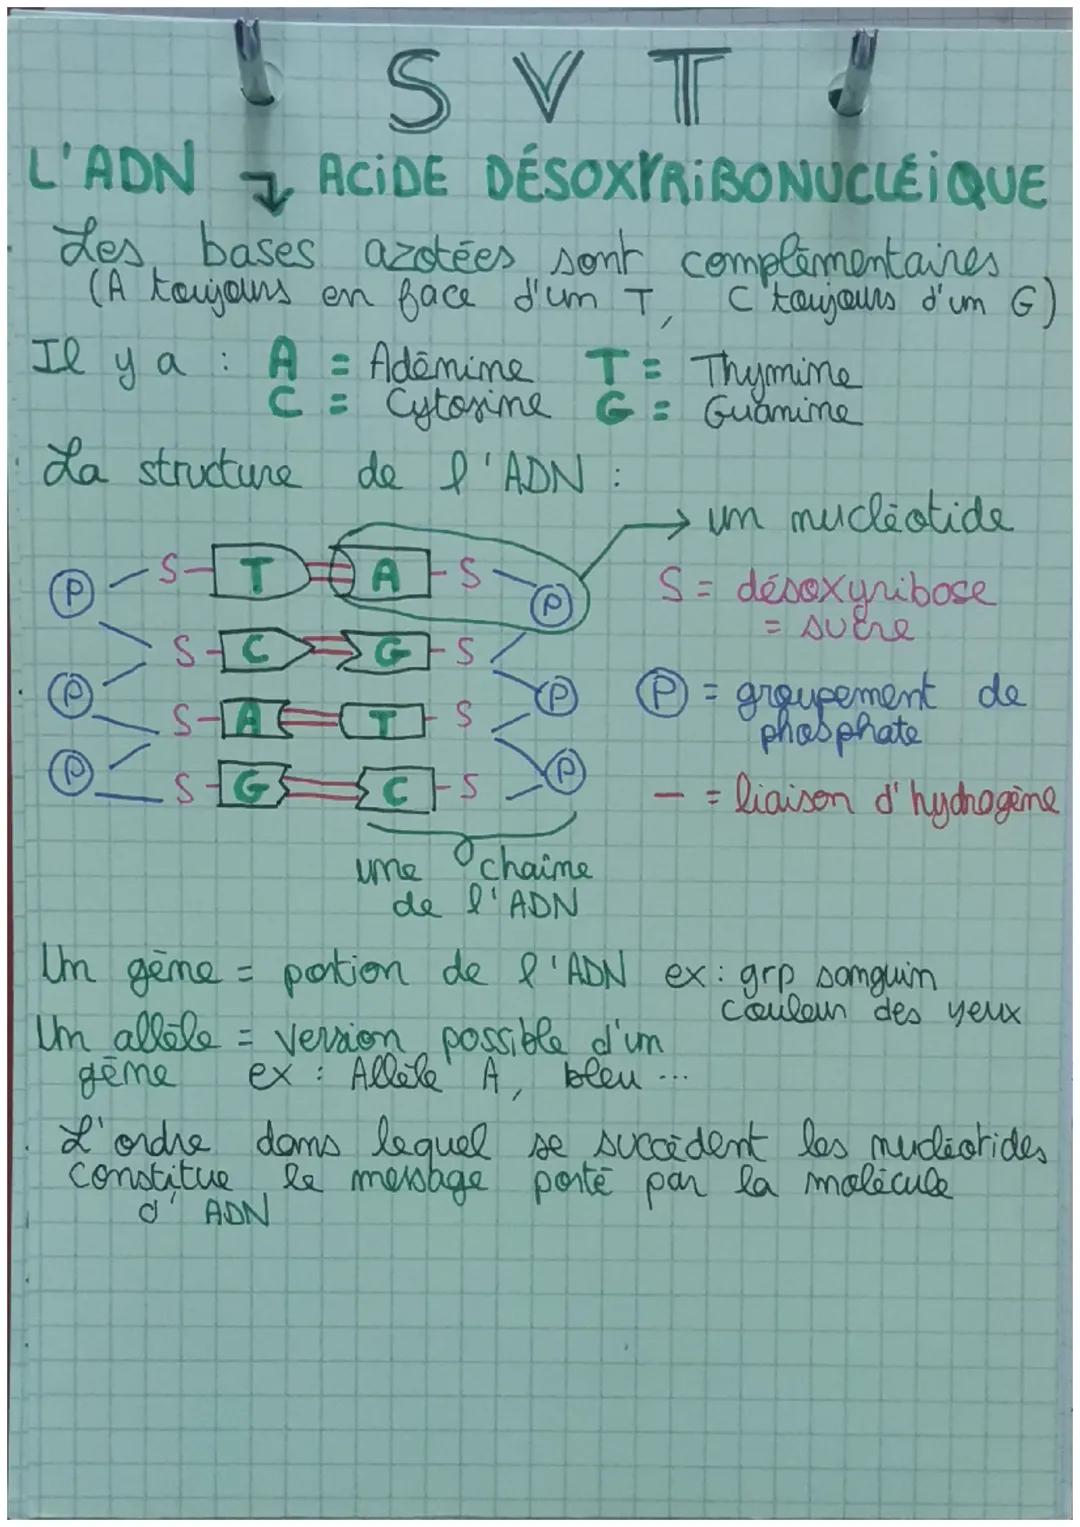 S V T
L'ADN → ACIDE DÉSOXYRIBONUCLÉIQUE
Les bases azotées sont complémentaires
(A toujours en face d'un T, C toujours d'un G)
Il y a : A = Adénine T = Thymine
C = Cytosine G = Guanine
La structure de l'ADN :
→ un nucléotide
P S T A S P
S = désoxyribose
= sucre
S C G S
P P
P = groupement de
phosphate
S A T S
P P
S G C S
- = liaison d'hydrogène
une chaine
de l'ADN
Un gène = portion de l'ADN ex : grp sanguin
couleur des yeux
Un allèle = version possible d'un
gène ex : Allèle A, bleu ...
L'ordre dans lequel se succèdent les nucléotides
constitue le message porté par la molécule
d'ADN